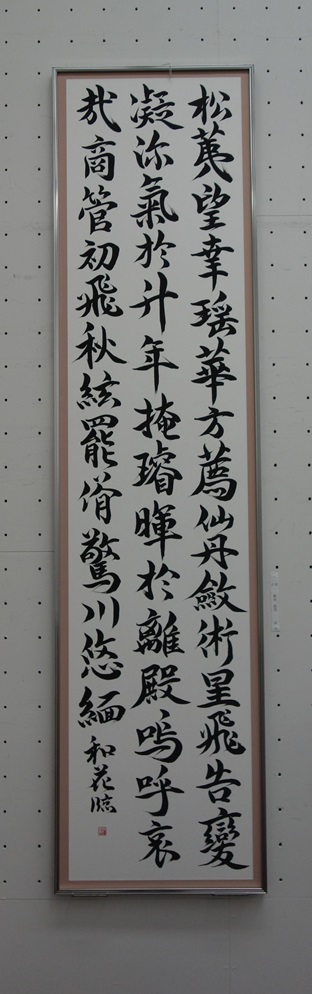 松荑望幸瑶華方薦仙丹斂術星飛告變
凝沴氣於升年掩璿暉於離殿嗚呼哀
哉商管初飛秋絃罷脩驚川悠緬
和花臨